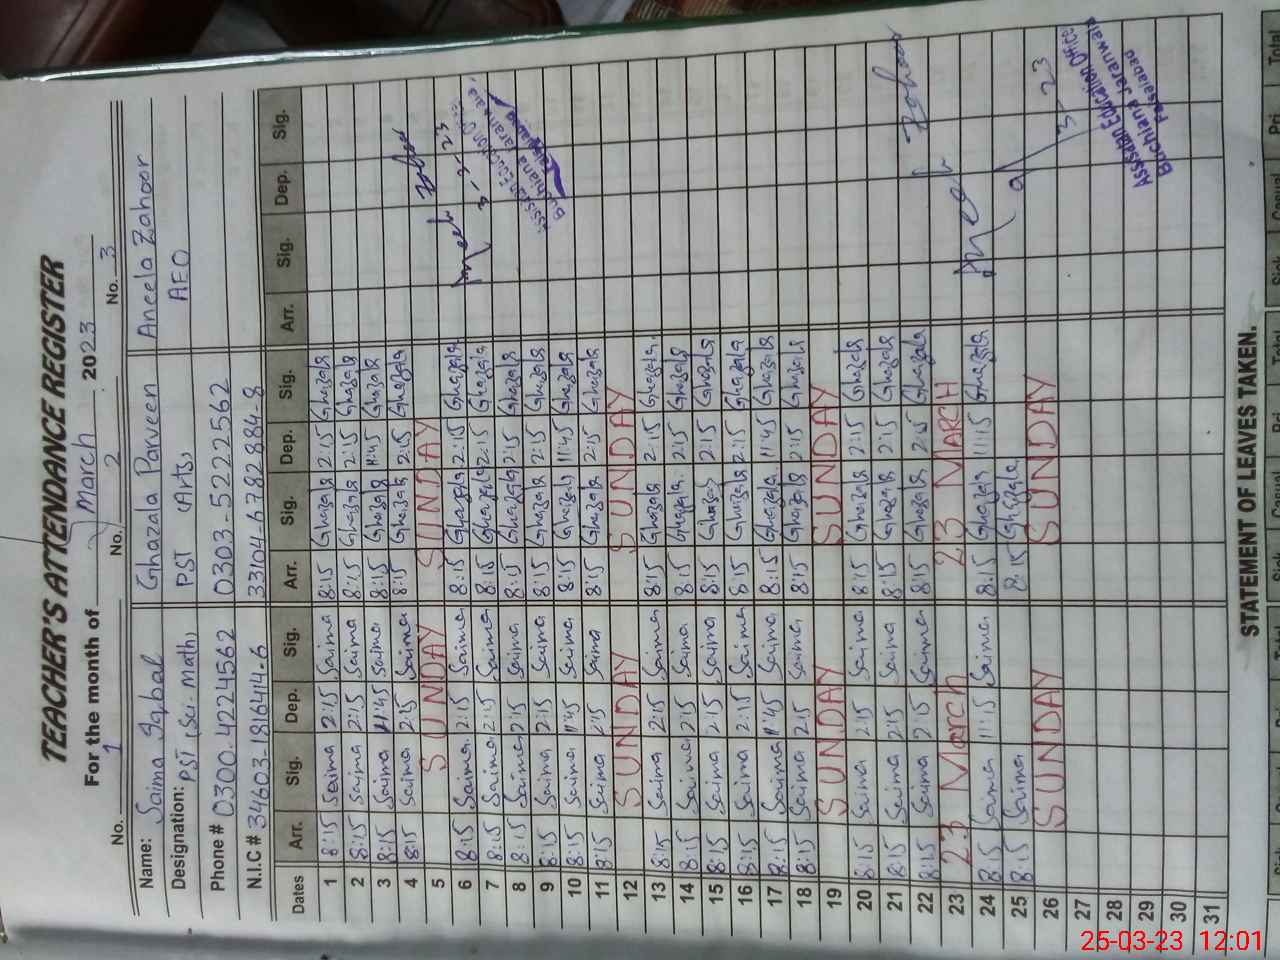 TEACHER'S ATTENDANCE REGISTER
For the month of March 2023
No. 1 No. 2 No. 3
Name: Saima Iqbal Ghazala Parveen Aneela Zahoor
Designation: PST (Sci. Math) PST (Arts) AEO
Phone # 0300-4224562 0303-5222562
N.I.C # 34603-1816414-6 33104-6782884-8
Dates Arr. Sig. Dep. Sig. Arr. Sig. Dep. Sig. Arr. Sig. Dep. Sig.
1 8:15 Saima 2:15 Saima 8:15 Ghazala 2:15 Ghazala
2 8:15 Saima 2:15 Saima 8:15 Ghazala 2:15 Ghazala
3 8:15 Saima 11:45 Saima 8:15 Ghazala 11:45 Ghazala
4 8:15 Saima 2:15 Saima 8:15 Ghazala 2:15 Ghazala
5 SUNDAY SUNDAY
6 8:15 Saima 2:15 Saima 8:15 Ghazala 2:15 Ghazala 3-3-23
7 8:15 Saima 2:15 Saima 8:15 Ghazala 2:15 Ghazala
8 8:15 Saima 2:15 Saima 8:15 Ghazala 2:15 Ghazala
9 8:15 Saima 2:15 Saima 8:15 Ghazala 2:15 Ghazala
10 8:15 Saima 11:45 Saima 8:15 Ghazala 11:45 Ghazala
11 8:15 Saima 2:15 Saima 8:15 Ghazala 2:15 Ghazala
12 SUNDAY SUNDAY
13 8:15 Saima 2:15 Saima 8:15 Ghazala 2:15 Ghazala
14 8:15 Saima 2:15 Saima 8:15 Ghazala 2:15 Ghazala
15 8:15 Saima 2:15 Saima 8:15 Ghazala 2:15 Ghazala
16 8:15 Saima 2:15 Saima 8:15 Ghazala 2:15 Ghazala
17 8:15 Saima 11:45 Saima 8:15 Ghazala 11:45 Ghazala
18 8:15 Saima 2:15 Saima 8:15 Ghazala 2:15 Ghazala
19 SUNDAY SUNDAY
20 8:15 Saima 2:15 Saima 8:15 Ghazala 2:15 Ghazala
21 8:15 Saima 2:15 Saima 8:15 Ghazala 2:15 Ghazala
22 8:15 Saima 2:15 Saima 8:15 Ghazala 2:15 Ghazala
23 23 March 23 MARCH
24 8:15 Saima 11:15 Saima 8:15 Ghazala 11:15 Ghazala
25 8:15 Saima 8:15 Ghazala
26 SUNDAY SUNDAY
27
28
29
30
31
Assistant Education Officer
Buchiana Jaranwala
Faisalabad
STATEMENT OF LEAVES TAKEN.
25-03-23 12:01